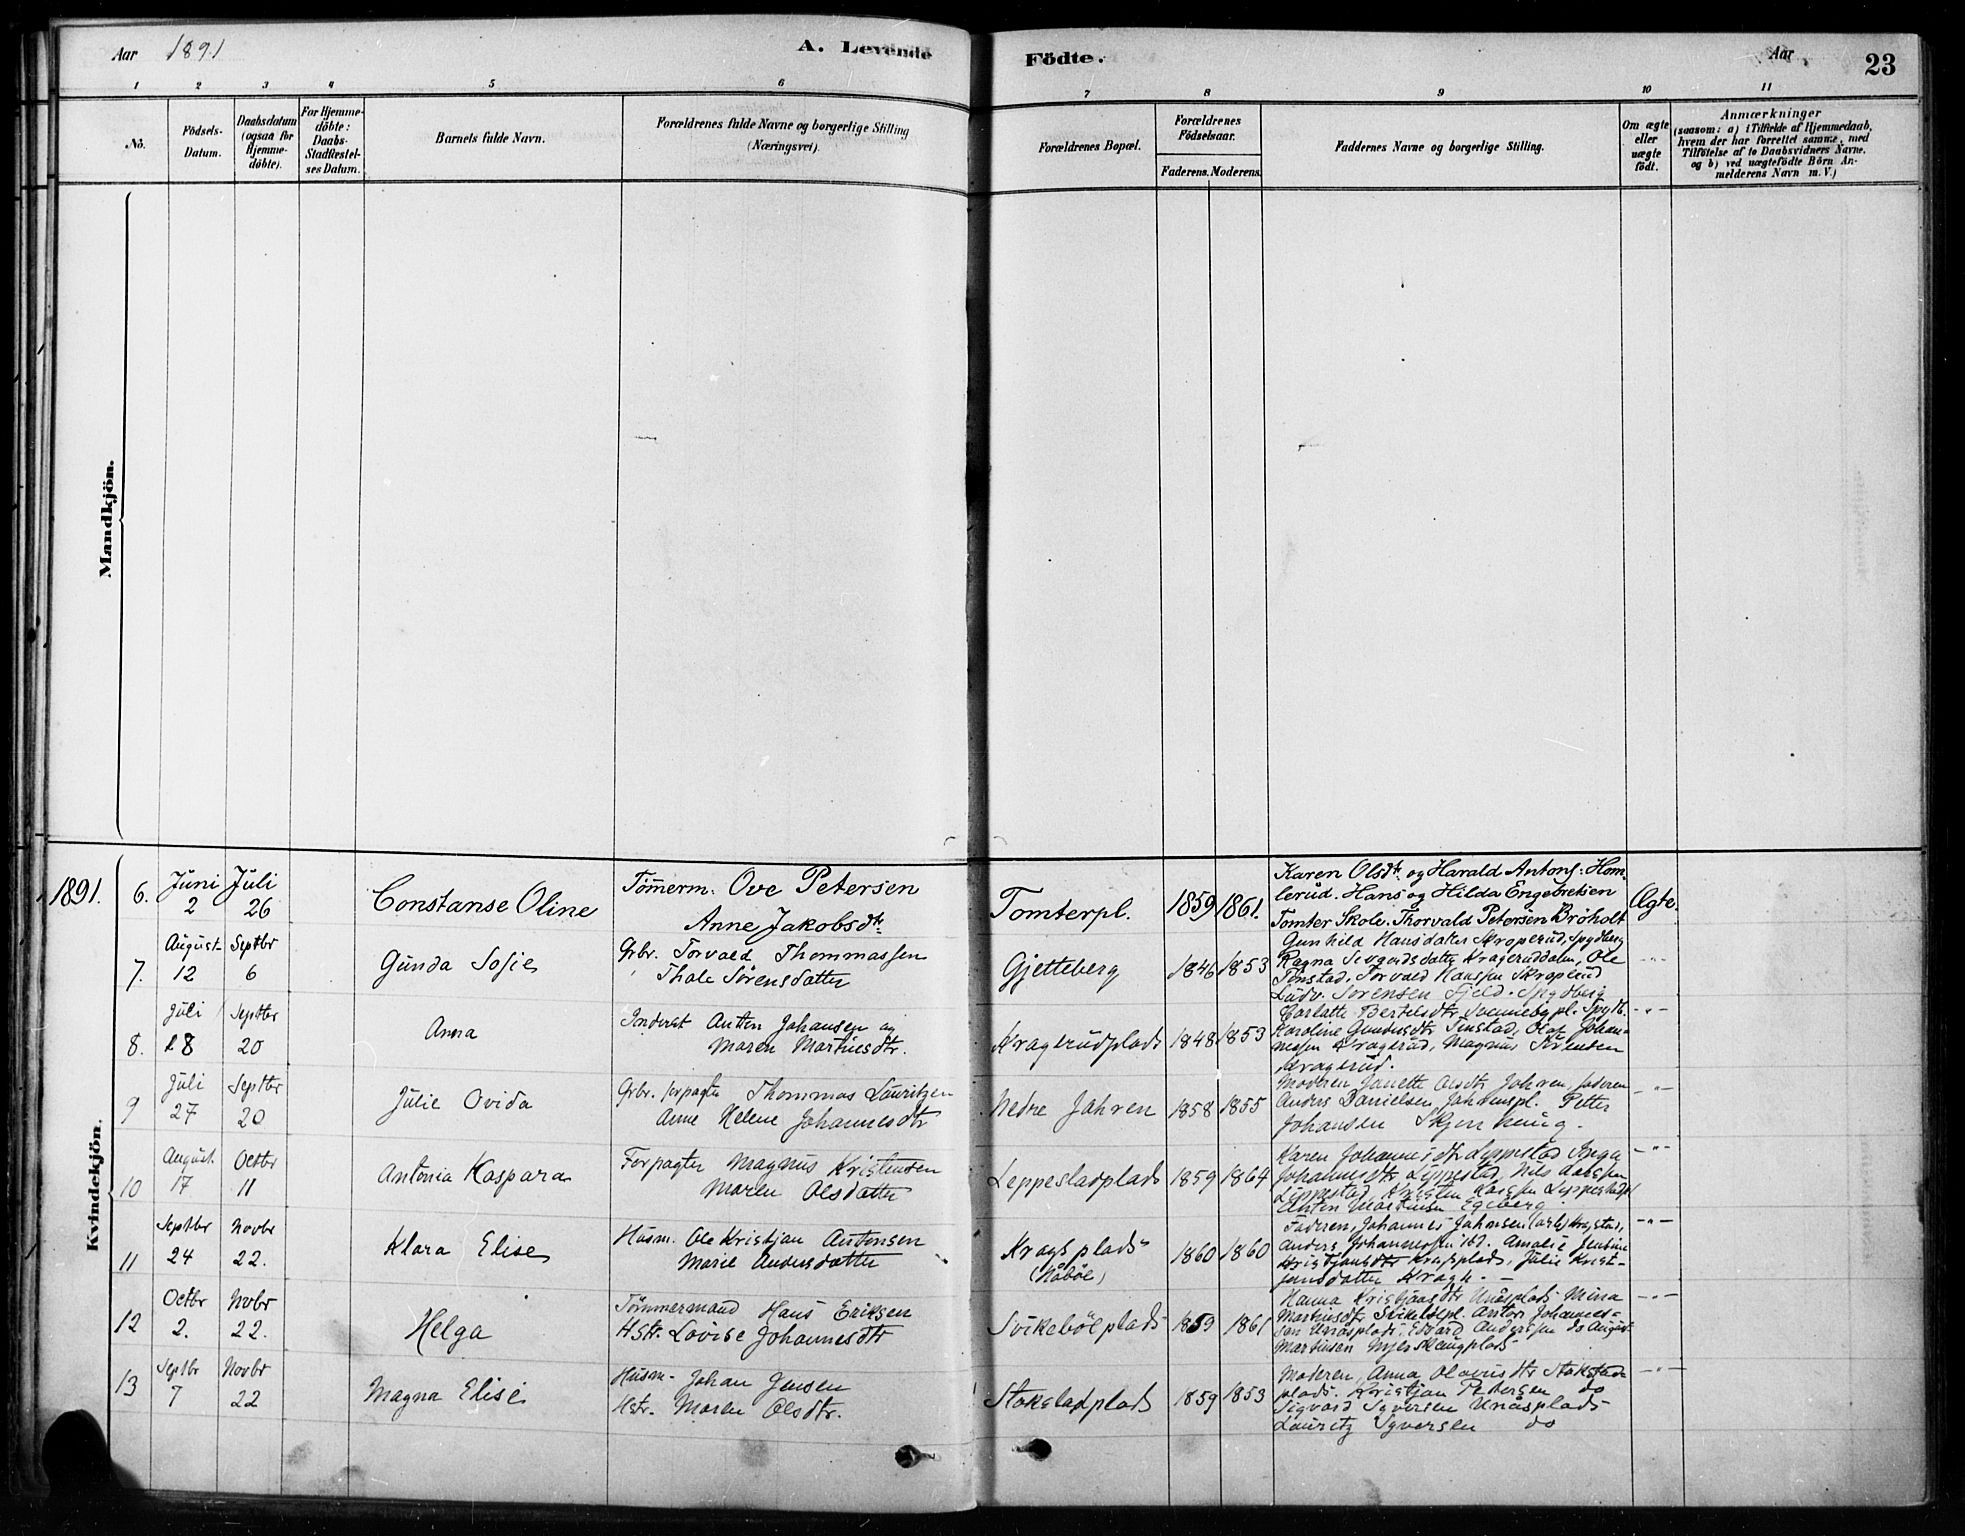 Aar 1891
A. Levende Födte.
Aar
23
1 2 3 4 5 6 7 8 9 10 11
No.
Födsels-Datum.
Daabsdatum (ogsaa for Hjemmedöbte).
For Hjemmedöbte: Daabs-Stadfæstelses Datum.
Barnets fulde Navn.
Forældrenes fulde Navne og borgerlige Stilling (Næringsvei).
Forældrenes Bopæl.
Forældrenes Födselsaar.
Faderens. Moderens.
Faddernes Navne og borgerlige Stilling.
Om ægte eller uægte födt.
Anmærkninger
(saasom: a) i Tilfælde af Hjemmedaab,
hvem der har forrettet samme, med
Tilföielse af to Daabsvidners Navne,
og b) ved uægtefödte Börn An-
melderens Navn m. V.)
Mandkjön.
Kvindekjön.
1891. 6. Juni 2 Juli 26 Constanse Oline Tömmerm. Ove Petersen
Anne Jakobsdtr. Tomterpl. 1859 1861. Ægte.
Karen Olsdtr. og Harald Antons. Hom-
lerud. Hans og Hilda Engebretsen
Tomter Skole. Thorvald Petersen Bröholt
7. August 12 Septbr 6 Gunda Sofie Grbr. Torvald Thommassen
Thale Sörensdatter Gjetteberg 1846 1853 -"-
Gunhild Hansdatter Skroperud, Spydberg
Ragna Sivgurdsdatter Krageruddalen, Ole
Finstad, Torvald Hansen Skroperud
Ludv. Sorensen Fjeld. Spydberg
8. Juli 8 Septbr 20 Anna Inderst Anton Johansen og
Maren Martinsdtr. Kragerudplads 1848 1853 -"-
Bertelsdtr Svennebypl. Spydb.
Karoline Gundersdtr Finstad, Olaf Johan-
nessen Kragerud, Magnus
Kragerud.
9 Juli 27 Septbr 20 Julie Ovida Grbr. forpagter Thommas Lauritzen
Anne Helene Johannesdtr Nedre Jahren 1858 1855 -"-
Moderen, Janette Olsdtr Jahren, faderen
Anders Danielsen, Jahrenspl. Petter
Johansen
10 August 17 Octbr 11 Antonia Kaspara Forpagter Magnus Kristensen
Maren Olsdatter Leppestadplads 1859 1864 -"-
Karen Johannesdtr Leppestad Inga
Johannesdtr Leppestad, Nils Larssen
Leppestad, Kristen Larssen Leppestadpl
Anton Martinsen Egeberg
11 Septbr 24 Novbr 22. Klara Elise Husm. Ole Kristjan Antonsen
Marie Andersdatter Kragsplads (Nåböl) 1860 1860 -"-
Faderen, Johannes Johnsen (arb)
Anders Johannessen ibd. Amalie Jensine
Kristjansdtr Kragsplads, Julie Krist-
jansdatter Kragh. -
12 Octbr 2. Novbr 22. Helga Tömmermand Hans Eriksen
Hstr. Lovise Johannesdtr Svikebölplads 1859 1861 -"-
Hanna Kristjansdtr Unåsplads. Mina
Martinsdtr Svikebölpl. Anton Johannes-
sen Unåsplads. Edvard Anderssen do August
Martinsen
13 Septbr 7 Novbr 22 Magna Elise Husm. Johan Jensen
Hstr. Maren Olsdtr. Stokstadplads 1859 1853 -"-
Moderen, Anna Olavusdtr Stokstad-
plads. Kristjan Pedersen do
Sigvard Syversen Unåsplads
Lauritz Syversen do